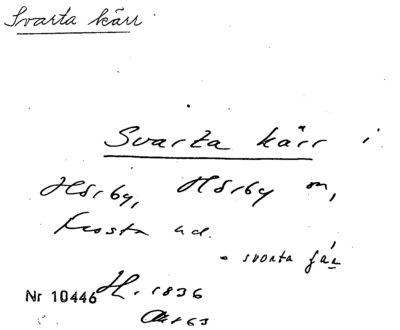 Svarta kärr
Svarta kärr i
Hörby, Hörby sn,
Frosta hd.
svarta får
Nr 10446 H. 1836
Akt 63